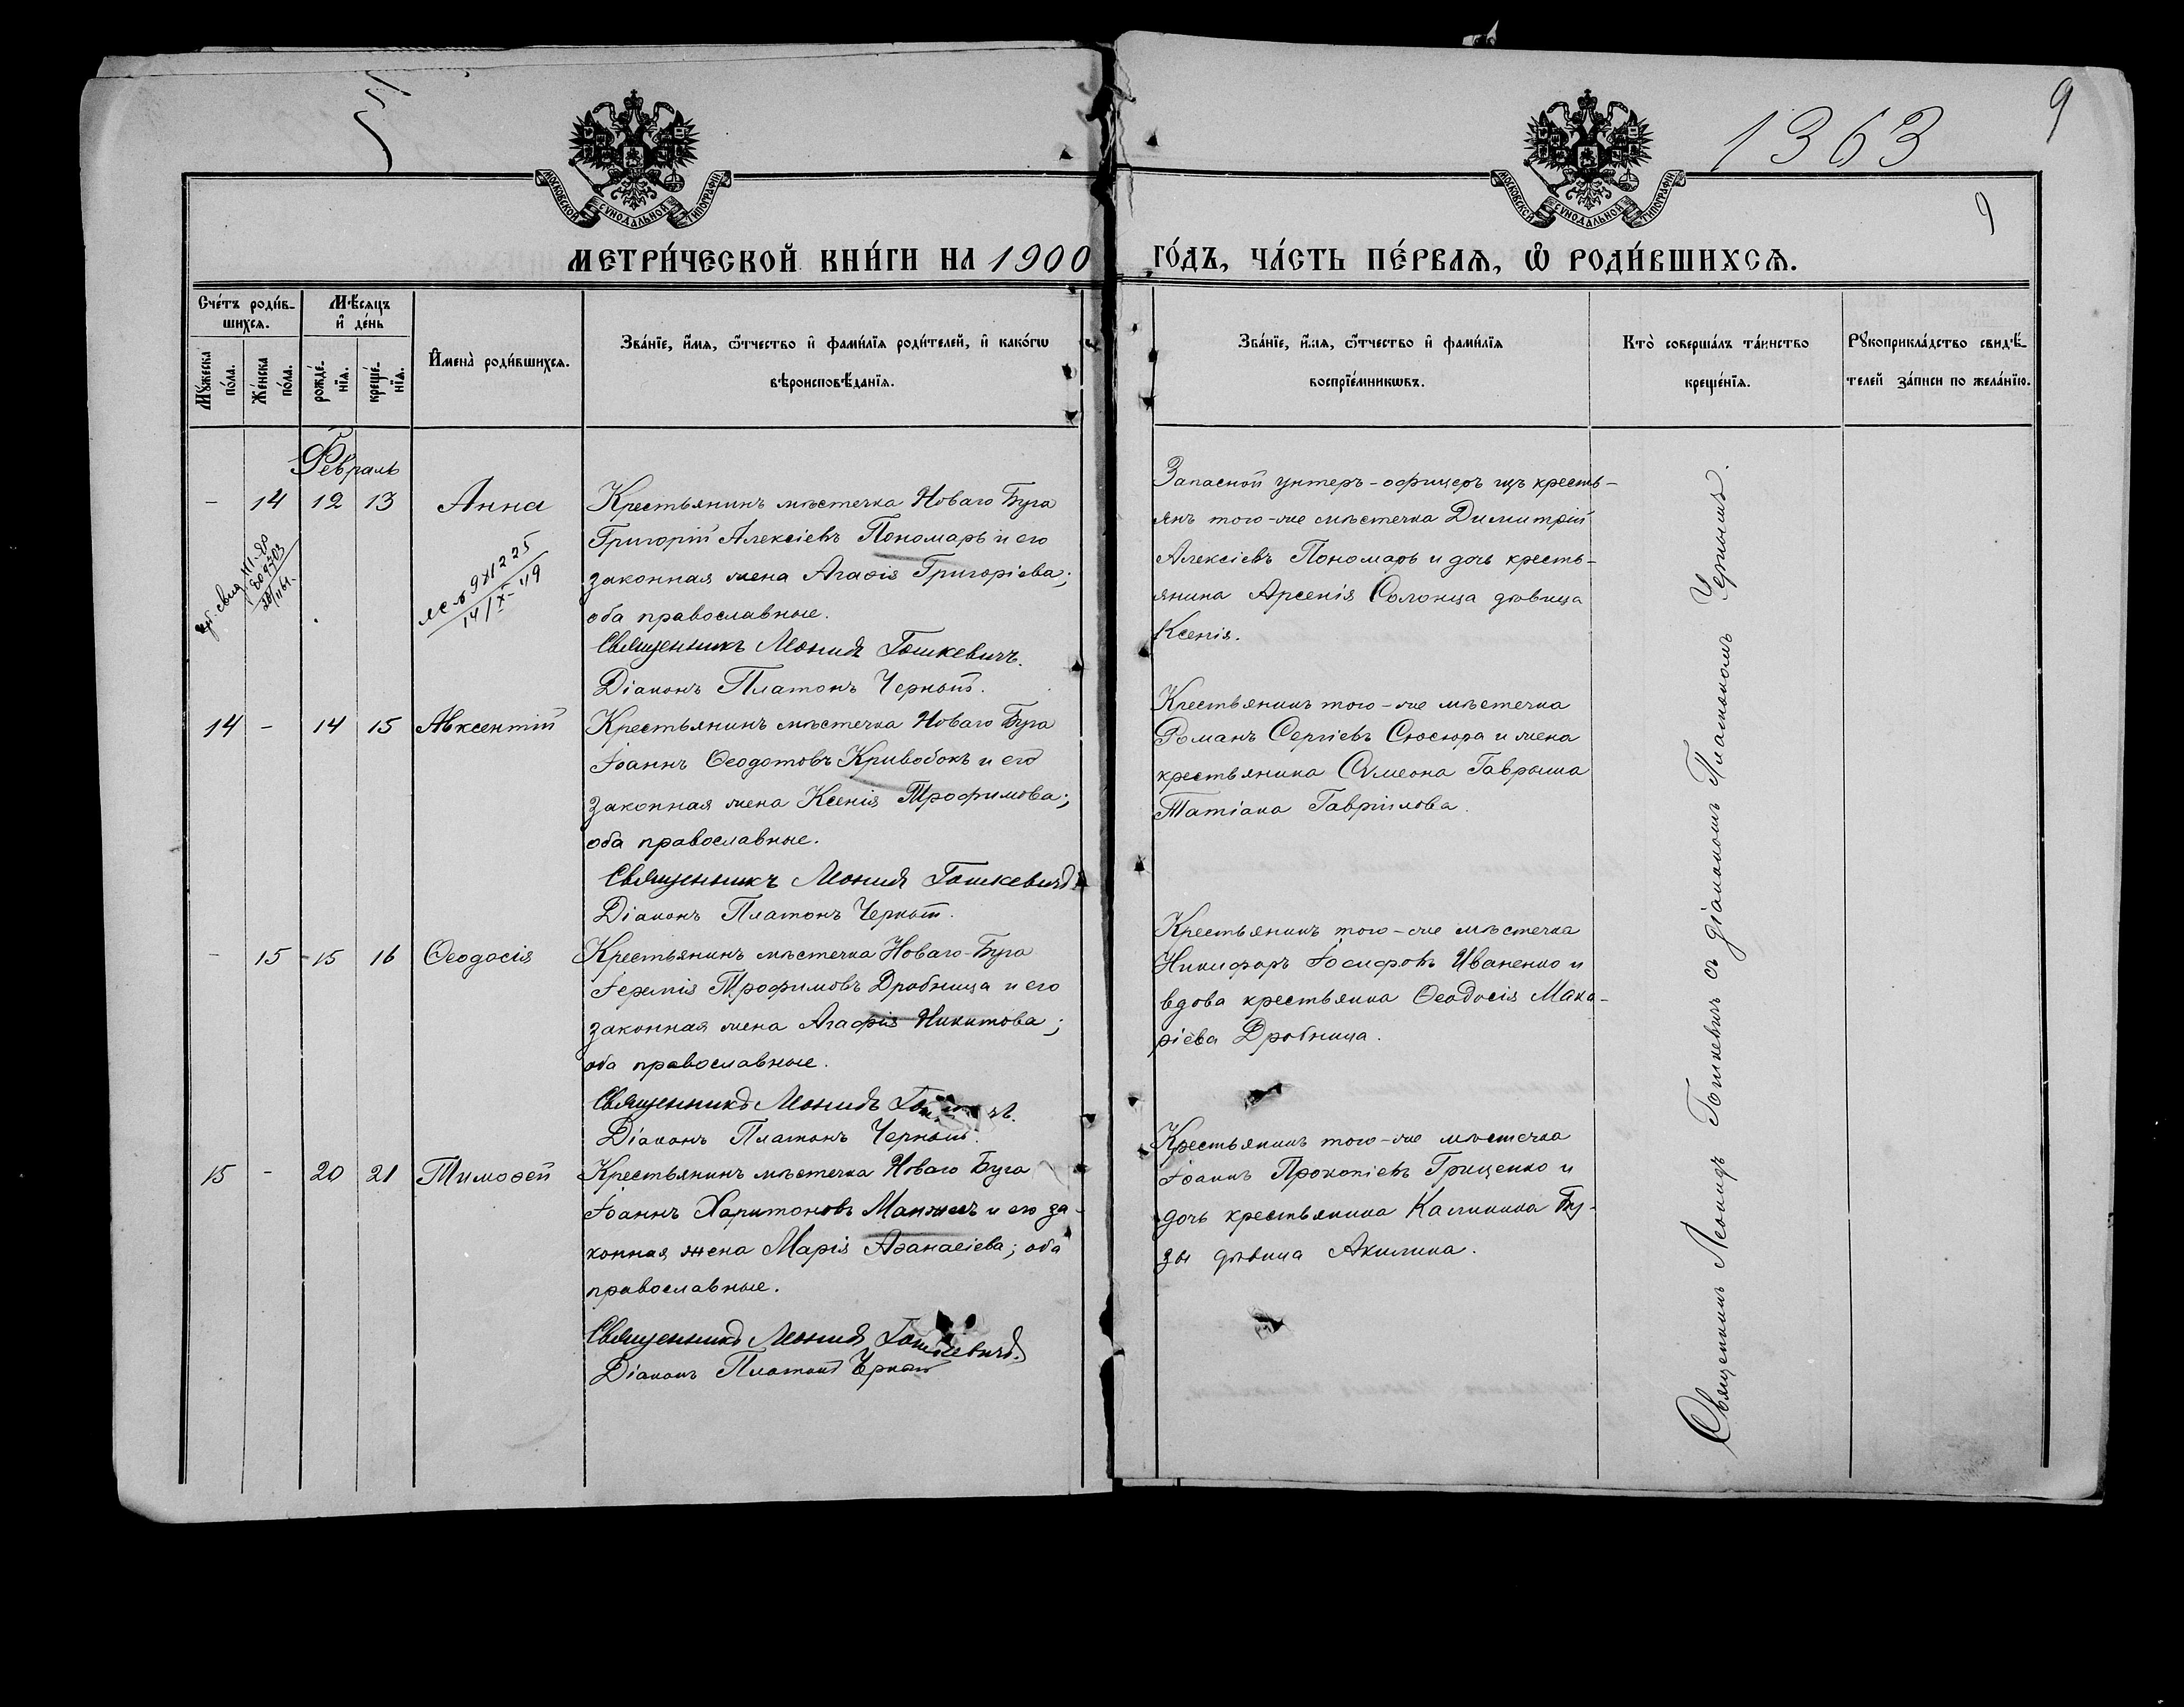 1363
9
9
МОСКОВСКОЙ СѴНОДАЛЬНОЙ ТИПОГРАФІИ
МОСКОВСКОЙ СѴНОДАЛЬНОЙ ТИПОГРАФІИ
МЕТРИ́ЧЕСКОЙ КНИ́ГИ НА 1900 ГО́ДЪ, ЧА́СТЬ ПЕ́РВАѦ, Ѡ РОДИ́ВШИХСѦ.
Сче́тъ роди́в-
шихсѧ.
Мꙋжеска по́ла.
Же́нска по́ла.
Мѣ́сѧцъ
и҆ де́нь
рожде́-
нїѧ.
креще́-
нїѧ.
И҆мена̀ роди́вшихсѧ.
Зва́нїе, и҆́мѧ, ѻ҆́тчество и҆ фами́лїѧ роди́телей, и҆ како́гѡ
вѣроисповѣ́данїѧ.
Зва́нїе, и҆́мѧ, ѻ҆́тчество и҆ фами́лїѧ
воспрїе́мникѡвъ.
Кто̀ соверша́лъ та́инство
креще́нїѧ.
Рꙋкоприкла́дство свидѣ́-
телей за́писи по жела́нїю.
Февраль
- 14 12 13 Анна
Крестьянинъ мѣстечка Новаго Буга
Григорій Алексіевъ Пономарь и его
законная жена Агаѳія Григоріева;
оба православные.
Священникъ Леонидъ Гошкевичъ.
Діаконъ Платонъ Черный.
Запасной унтеръ-офицеръ изъ кресть-
янъ того-же мѣстечка Димитрій
Алексіевъ Пономарь и дочь кресть-
янина Арсенія Солонца дѣвица
Ксенія.
14 - 14 15 Авксентій
Крестьянинъ мѣстечка Новаго Буга
Іоаннъ Ѳеодотовъ Кривобокъ и его
законная жена Ксенія Трофимова;
оба православные.
Священникъ Леонидъ Гошкевичъ
Діаконъ Платонъ Черный.
Крестьянинъ того-же мѣстечка
Романъ Сергіевъ Сюсюра и жена
крестьянина Сѵмеона Гаврыша
Татіана Гавріилова.
- 15 15 16 Ѳеодосія
Крестьянинъ мѣстечка Новаго-Буга
Іеремія Трофимовъ Дробница и его
законная жена Агафія Никитова;
оба православные.
Священникъ Леонидъ
Діаконъ Платонъ Черный.
Крестьянинъ того-же мѣстечка
Никифоръ Іосифовъ Иваненко и
вдова крестьянка Ѳеодосія Мака-
ріева Дробница.
15 - 20 21 Тимоѳей
Крестьянинъ мѣстечка Новаго Буга
Іоаннъ Харитоновъ и его за-
конная жена Марія Аѳанасіева; оба
православные.
Священникъ Леонидъ Гошкевичъ.
Діаконъ Платонъ Черный
Крестьянинъ того-же мѣстечка
Іоаннъ Прокопіевъ Гриценко и
дочь крестьянина Калиника Бу-
зы дѣвица Акилина.
Священникъ Леонидъ Гошкевичъ съ діакономъ Платономъ Чернымъ.